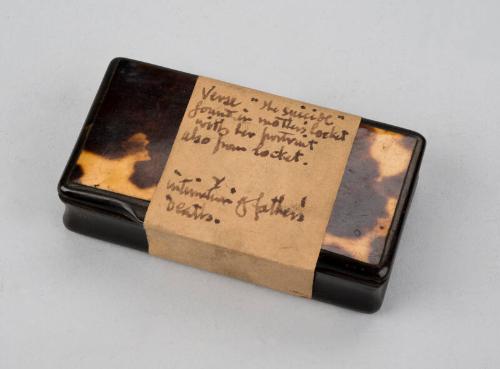 Verse "the suicide"
found in mothers locket
with her portrait
also from locket.
y
intimation of father's
Death.